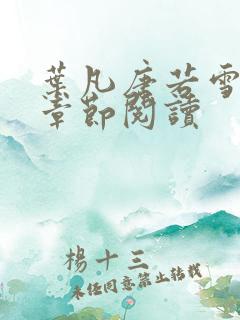 葉凡唐若雪
章節閱讀
楊十三
未經同意禁止轉載